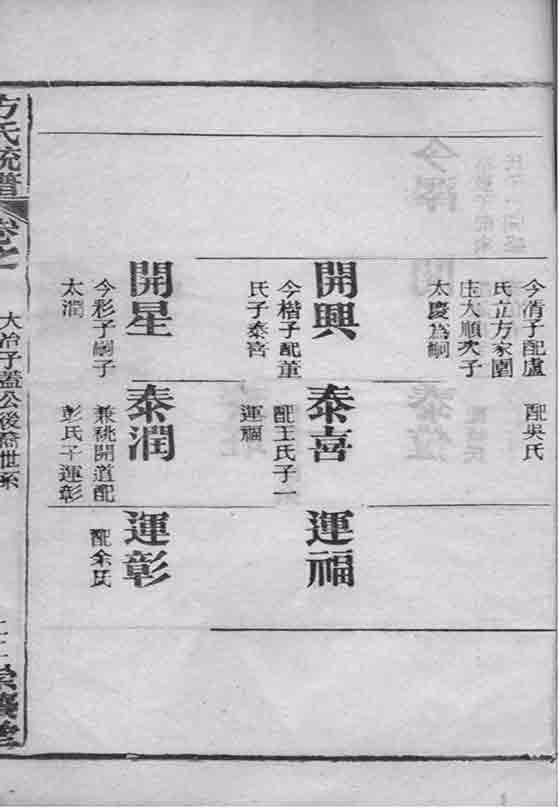 今清子配盧
氏立方家園
庄大順次子
太慶為嗣
配吳氏
開興
今楷子配董
氏子泰喜
泰喜
配王氏子一
運福
運福
開星
今彩子嗣子
太潤
泰潤
兼祧開道配
彭氏子運彰
運彰
配余氏
方氏統譜
卷之
大冶子蓋公後裔世系